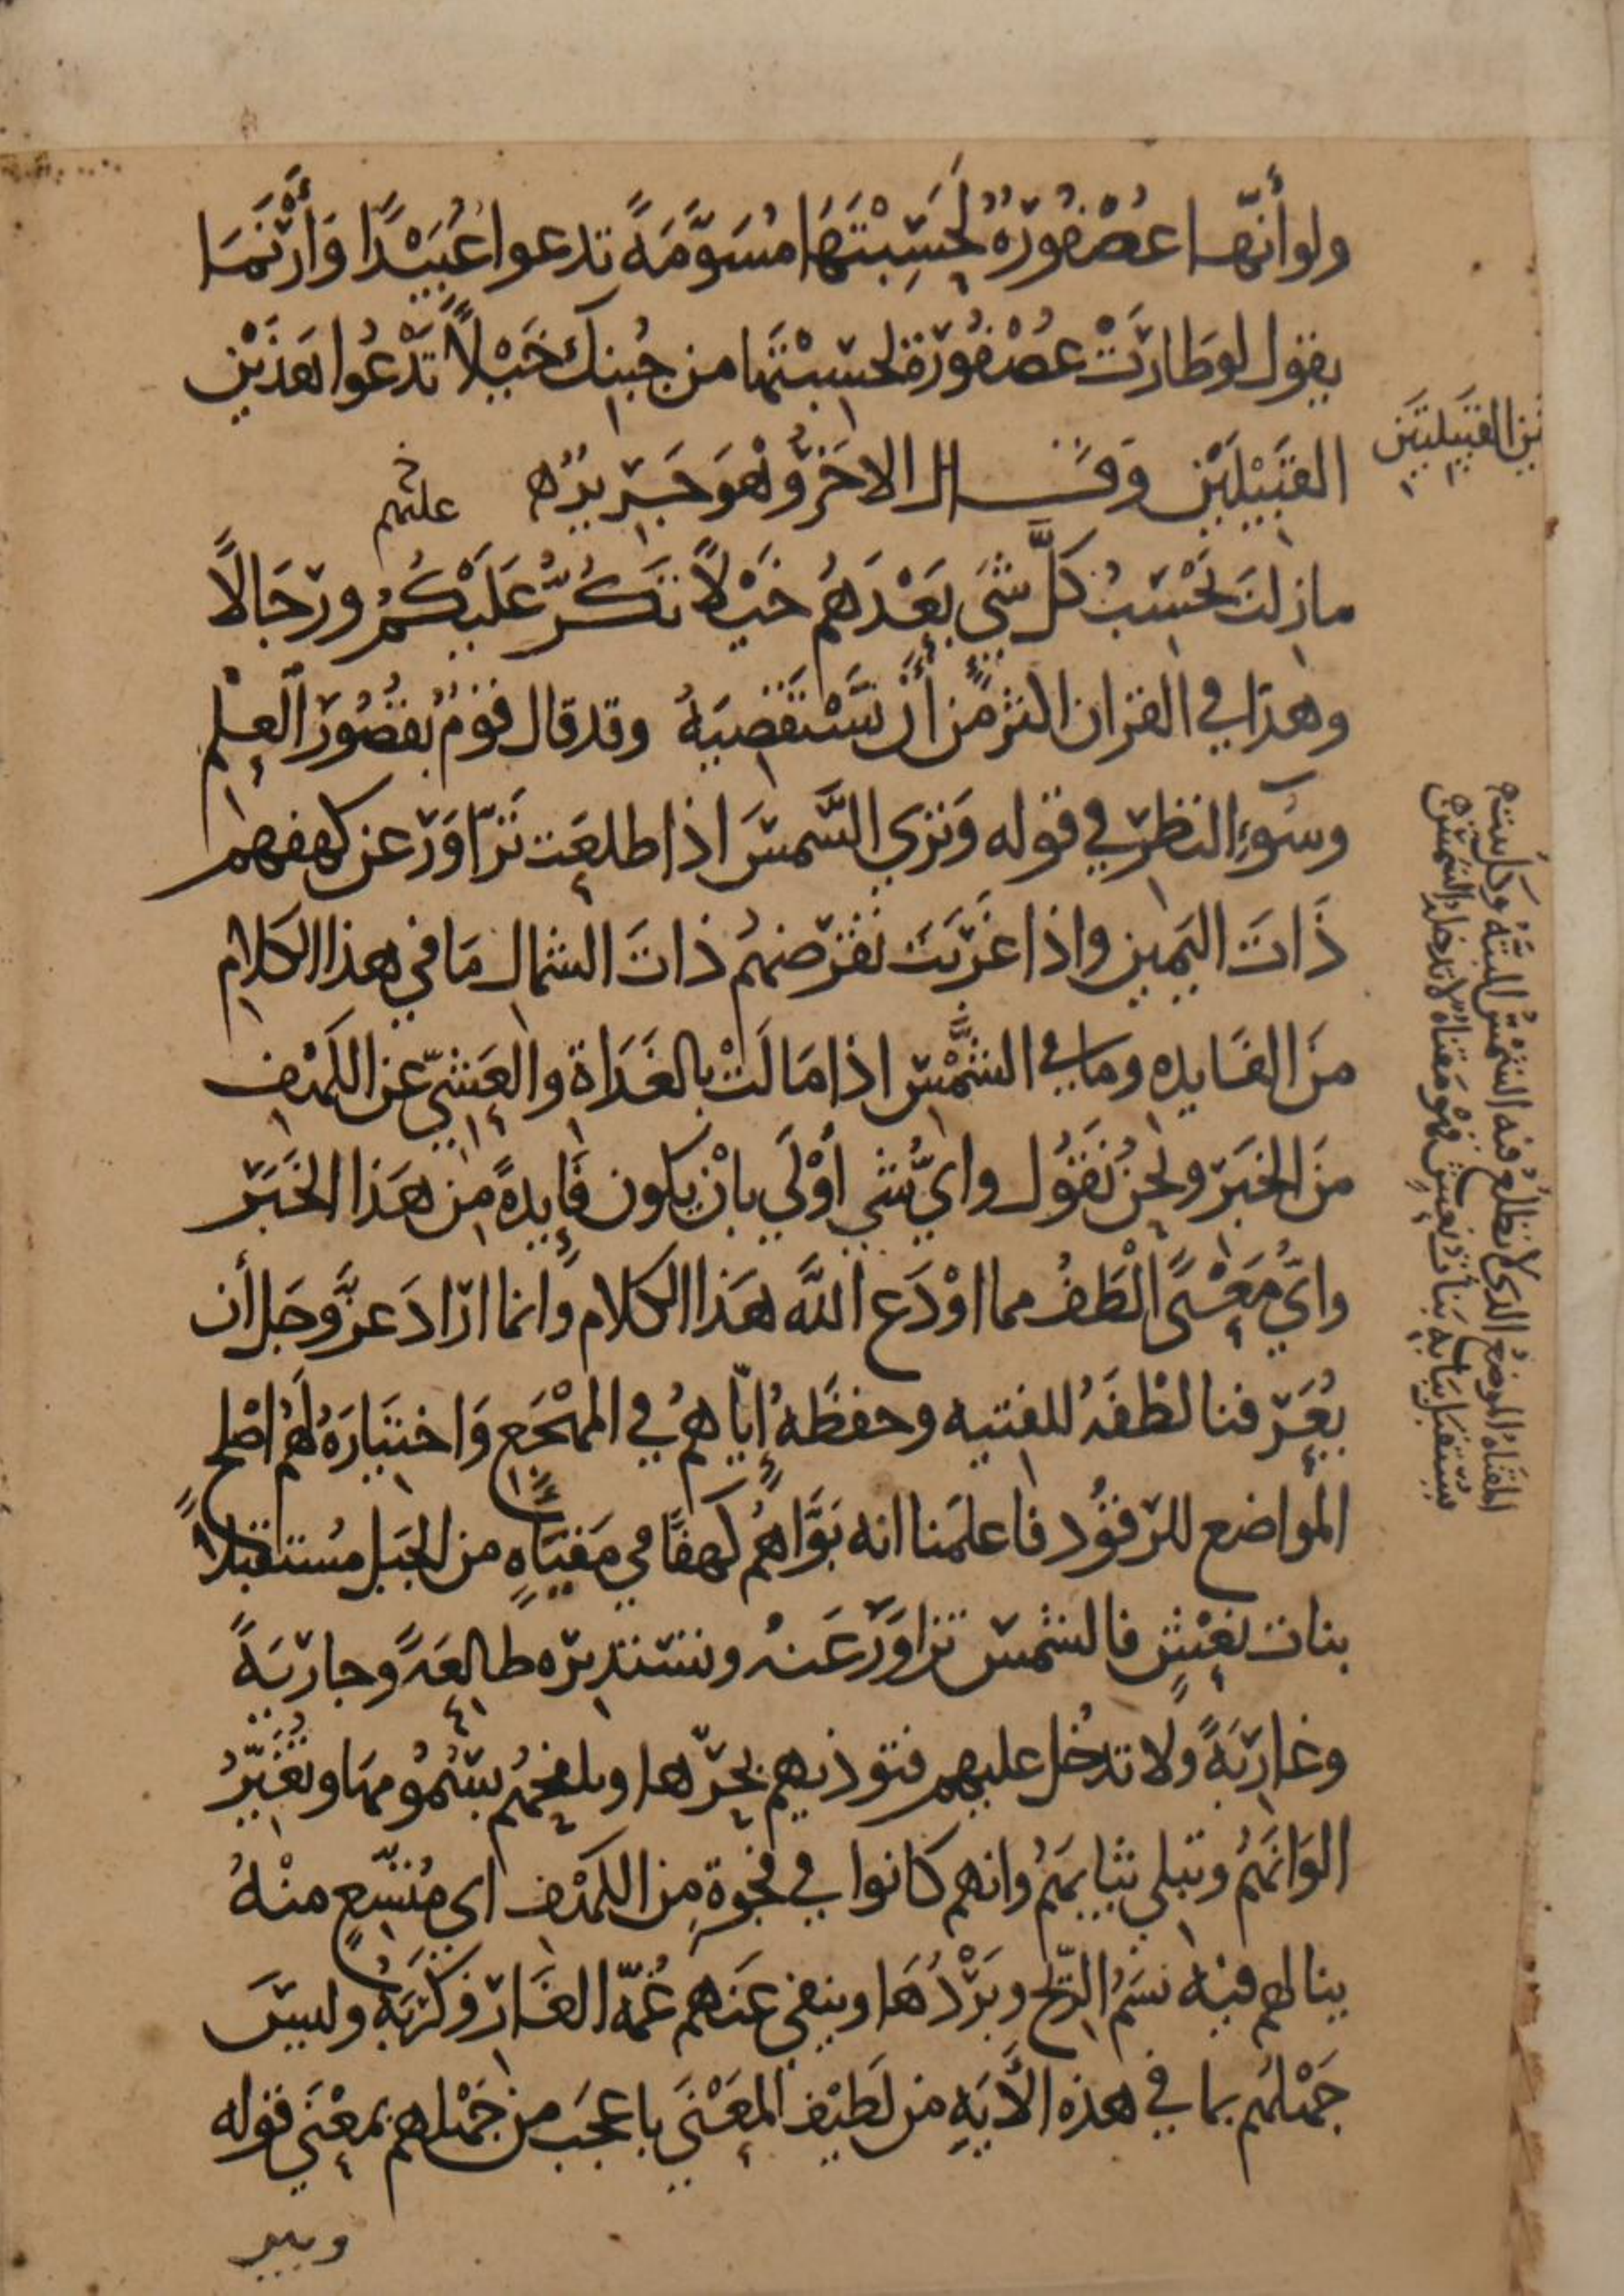 ولو أنّها عُصْفُورَةٌ لَحَسِبْتَهَا مُسَوَّمَةً تدعوا عُبَيْدًا وَأَزْنَمَا
يقول لو طارَتْ عُصْفُورَة لحسِبْتَها من جُبنك خَيْلاً تَدْعُوا هَذَيْنِ
القَبِيْلَيْنِ وَقَال الاخَرُ وَهْوَ جَرِيرٌ ه
عليهم
مازلتَ تَحْسَبُ كلَّ شَيٍ بَعْدَهُمْ خَيْلاً تَكُرُّ عَلَيْكُمُ ورِجَالاً
وهذا في القران اكثر من أنْ نَسْتَقْصِيَهُ وقد قال قومٌ بقُصُورِ العِلْمِ
وسُوءِ النظرِ في قوله وَتَرَي الشَّمسَ اذا طلعَت تَزَّاوَرُ عن كهفهم
ذَاتَ اليَمِينِ واذا غَرَبَت تَقْرِضهُم ذاتَ الشمال مَا في هذا الكلامِ
منَ الفَايده وما في الشَّمْسِ اذا مَالَتْ بالغَدَاة والعَشِيِّ عن الكَهْفِ
منَ الخبَرِ ونحنُ نَقُول وايُّ شيٍ أوْلَي بانْ يكون فَايِدةً مِن هَذا الخَبَرِ
وايُّ مَعْنًى ألْطَفُ مما اوْدَع اللَّه هَذا الكلام وانما ارَادَ عزَّ وجَل أن
يُعَرِّفنا لطْفَهُ للفتيه وحفظَهُ إيّاهُمْ في المهْجَع وَاختيَارَهُ لَهُمْ اصْلح
المواضع للرقُود فاعلمَنا انه بَوَّاهُمْ كهفًا في مَقْنَاةٍ من الجَبَل مُستقبلاً
بنات نَعْشٍ فالشمس تزاوَرُ عَنهُ وتستدبرُه طالِعَةً وجاريَةً
وغارِبَةً ولا تدخُل عليهم فتوذيهم بحَرّها وتلفحُهُم بسَمُومهَا وتُغَيِّرُ
الوَانَهُمْ وتبلي ثيابهُمْ وانهم كانوا في فجوةٍ مِن الكَهْفِ اي مُتَّسِعٍ منْهُ
ينالهم فيه نسَيمُ الرّيح وبَرْدُهَا وينفي عَنهم غُمَّة الغَارِ وكَرْبَهُ وليسَ
جَهْلُهُم بما في هذه الأَيَةِ من لَطِيْفِ المَعْنَي باعجَب من جَهْلهم بمعْنَي قوله
وبير
ـين القبيلتين
المقناةُ الموضعُ الذي لا تطلُعُ فيه الشمسُ البتَّةَ
يستقبل بنات نعش فهو مقناة لا تدخله الشمس